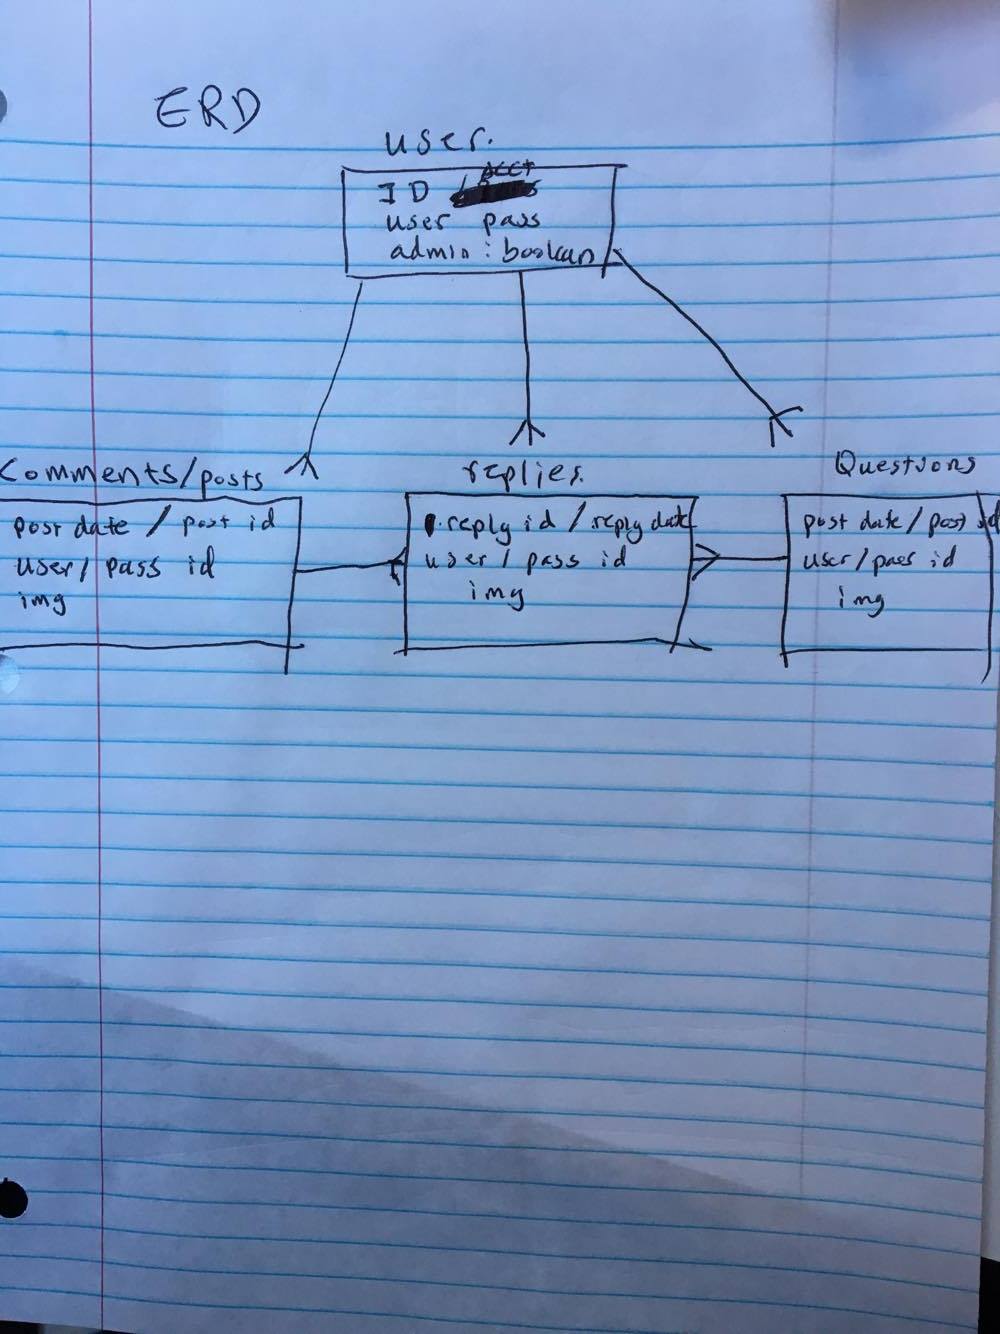 ERD
user.
ACCT
ID
user pass
admin : boolean
Comments/posts
post date / post id
user/pass id
img
replies.
reply id / reply date
user/pass id
img
Questions
post date/post id
user/pass id
img